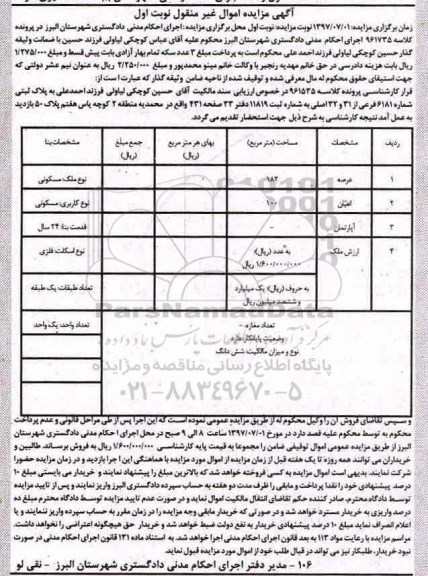 آگهی مزایده اموال غیر منقول نوبت اول
زمان برگزاری مزایده: ۱۳۹۷/۰۷/۰۱ نوبت مزایده: نوبت اول محل برگزاری مزایده: اجرای احکام مدنی دادگستری شهرستان البرز در پرونده
کلاسه ۹۶۱۷۳۵ اجرای احکام مدنی دادگستری شهرستان البرز محکوم علیه آقای عباس کوچکی لیاولی فرزند حسین با ضمانت وثیقه
گذار حسین کوچکی لیاولی فرزند احمد علی محکوم است به پرداخت مبلغ ۳ عدد سکه تمام بهار آزادی بابت پیش قسط و مبلغ ۱/۲۷۵/۰۰۰
ریال بابت هزینه دادرسی در حق خانم مهدیه رنجبر با وکالت خانم مینو محمدپور و مبلغ ۲/۲۵۰/۰۰۰ ریال به عنوان نیم عشر دولتی که
جهت استیفای حقوق محکوم له مال معرفی شده و توقیف شده از ناحیه ضامن وثیقه گذار که عبارت است از:
قرار کارشناسی پرونده کلاسه ۹۶۱۵۳۵ در خصوص ارزیابی سند مالکیت آقای حسین کوچکی لیاولی فرزند احمدعلی به پلاک ثبتی
شماره ۶۱۸۱ فرعی از ۳۱ و ۳۲ اصلی به شماره ثبت ۱۱۸۱۹ دفتر ۳۳ صفحه ۴۳۱ واقع در محمدیه منطقه ۲ کوچه یاس هفتم پلاک ۵۰ بازدید
به عمل آمد نتیجه کارشناسی به شرح ذیل جهت استحضار تقدیم می گردد.
ردیف مشخصات مساحت (متر مربع) بهای هر متر مربع (ریال) جمع مبلغ (ریال) مشخصات بنا
۱ عرصه ۱۸۲ نوع ملک: مسکونی
۲ اعیان ۱۰۰ نوع کاربری: مسکونی
۳ آپارتمان - قدمت بنا: ۲۴ سال
۴ ارزش ملک به عدد (ریال): ۱/۶۰۰/۰۰۰/۰۰۰ ریال نوع اسکلت: فلزی
به حروف (ریال): یک میلیارد و ششصد میلیون ریال تعداد طبقات: یک طبقه
تعداد مغازه: - تعداد واحد: یک واحد
وضعیت پایانکار: دارد
نوع و میزان مالکیت شش دانگ
ParsNamadData
پایگاه اطلاع رسانی مناقصه و مزایده
۰۲۱-۸۸۳۴۹۶۷۰-۵
و سپس تقاضای فروش آن را وکیل محکوم له از طریق مزایده عمومی نموده است که این اجرا پس از طی مراحل قانونی و عدم پرداخت
محکوم به توسط محکوم علیه قصد دارد در مورخ ۱۳۹۷/۰۷/۰۱ ساعت ۸ الی ۹ صبح در محل اجرای احکام مدنی دادگستری شهرستان
البرز از طریق مزایده عمومی اموال توقیفی ضامن را مجموعا به قیمت پایه کارشناسی ۱/۶۰۰/۰۰۰/۰۰۰ ریال به فروش برساند. طالبین و
خریداران می توانند همه روزه تا یک هفته قبل از زمان مزایده از اموال مورد مزایده با هماهنگی این اجرا بازدید و در زمان مزایده حضورا
شرکت نمایند. بدیهی است اموال مزایده به کسی فروخته خواهد شد که بالاترین مبلغ را پیشنهاد نمایند و خریدار می بایستی مبلغ ۱۰
درصد پیشنهادی خود را نقدا پرداخت و مابقی را ظرف مدت دو هفته به حساب سپرده دادگستری البرز واریز نمایند و پس از تایید مزایده
توسط دادگاه محترم، صادر کننده حکم تقاضای انتقال مالکیت اموال نماید و در صورت عدم تایید مزایده توسط دادگاه محترم مبلغ ده
درصد واریزی به خریدار مسترد خواهد شد و در صورتی که خریدار مابقی وجه مزایده را در زمان مقرر به حساب سپرده واریز ننمایند و یا
اعلام انصراف نماید مبلغ ۱۰ درصد پیشنهادی خریدار به نفع دولت ضبط خواهد شد و خریدار حق هیچگونه اعتراضی را نخواهد داشت.
مراسم مزایده با رعایت مواد ۱۱۳ به بعد قانون اجرای احکام مدنی اجرا خواهد شد. به استناد ماده ۱۳۱ قانون اجرای احکام مدنی در صورت
نبود خریدار، طلبکار نیز می تواند در قبال طلب خود از اموال مورد مزایده قبول نماید.
۱۰۶ - مدیر دفتر اجرای احکام مدنی دادگستری شهرستان البرز - نقی لو